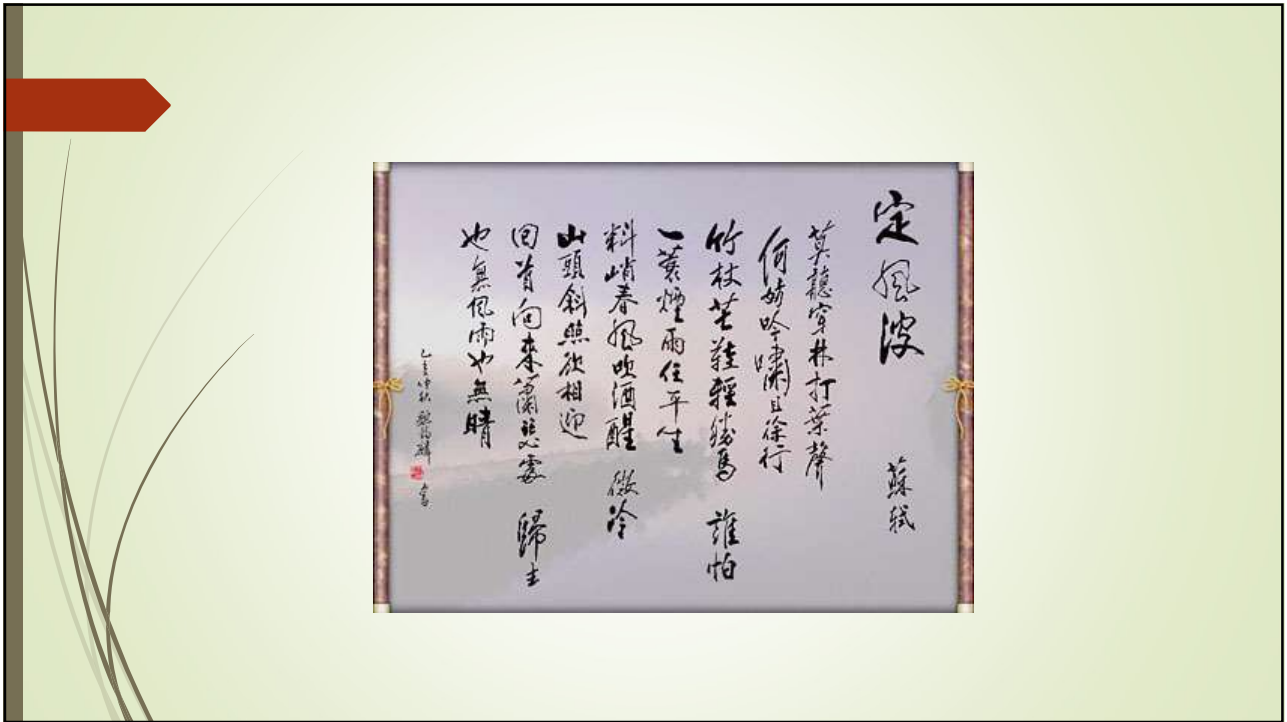 定風波 蘇軾
莫聽穿林打葉聲
何妨吟嘯且徐行
竹杖芒鞋輕勝馬 誰怕
一蓑煙雨任平生
料峭春風吹酒醒 微冷
山頭斜照欲相迎
回首向來蕭瑟處 歸去
也無風雨也無晴
乙亥仲秋 書